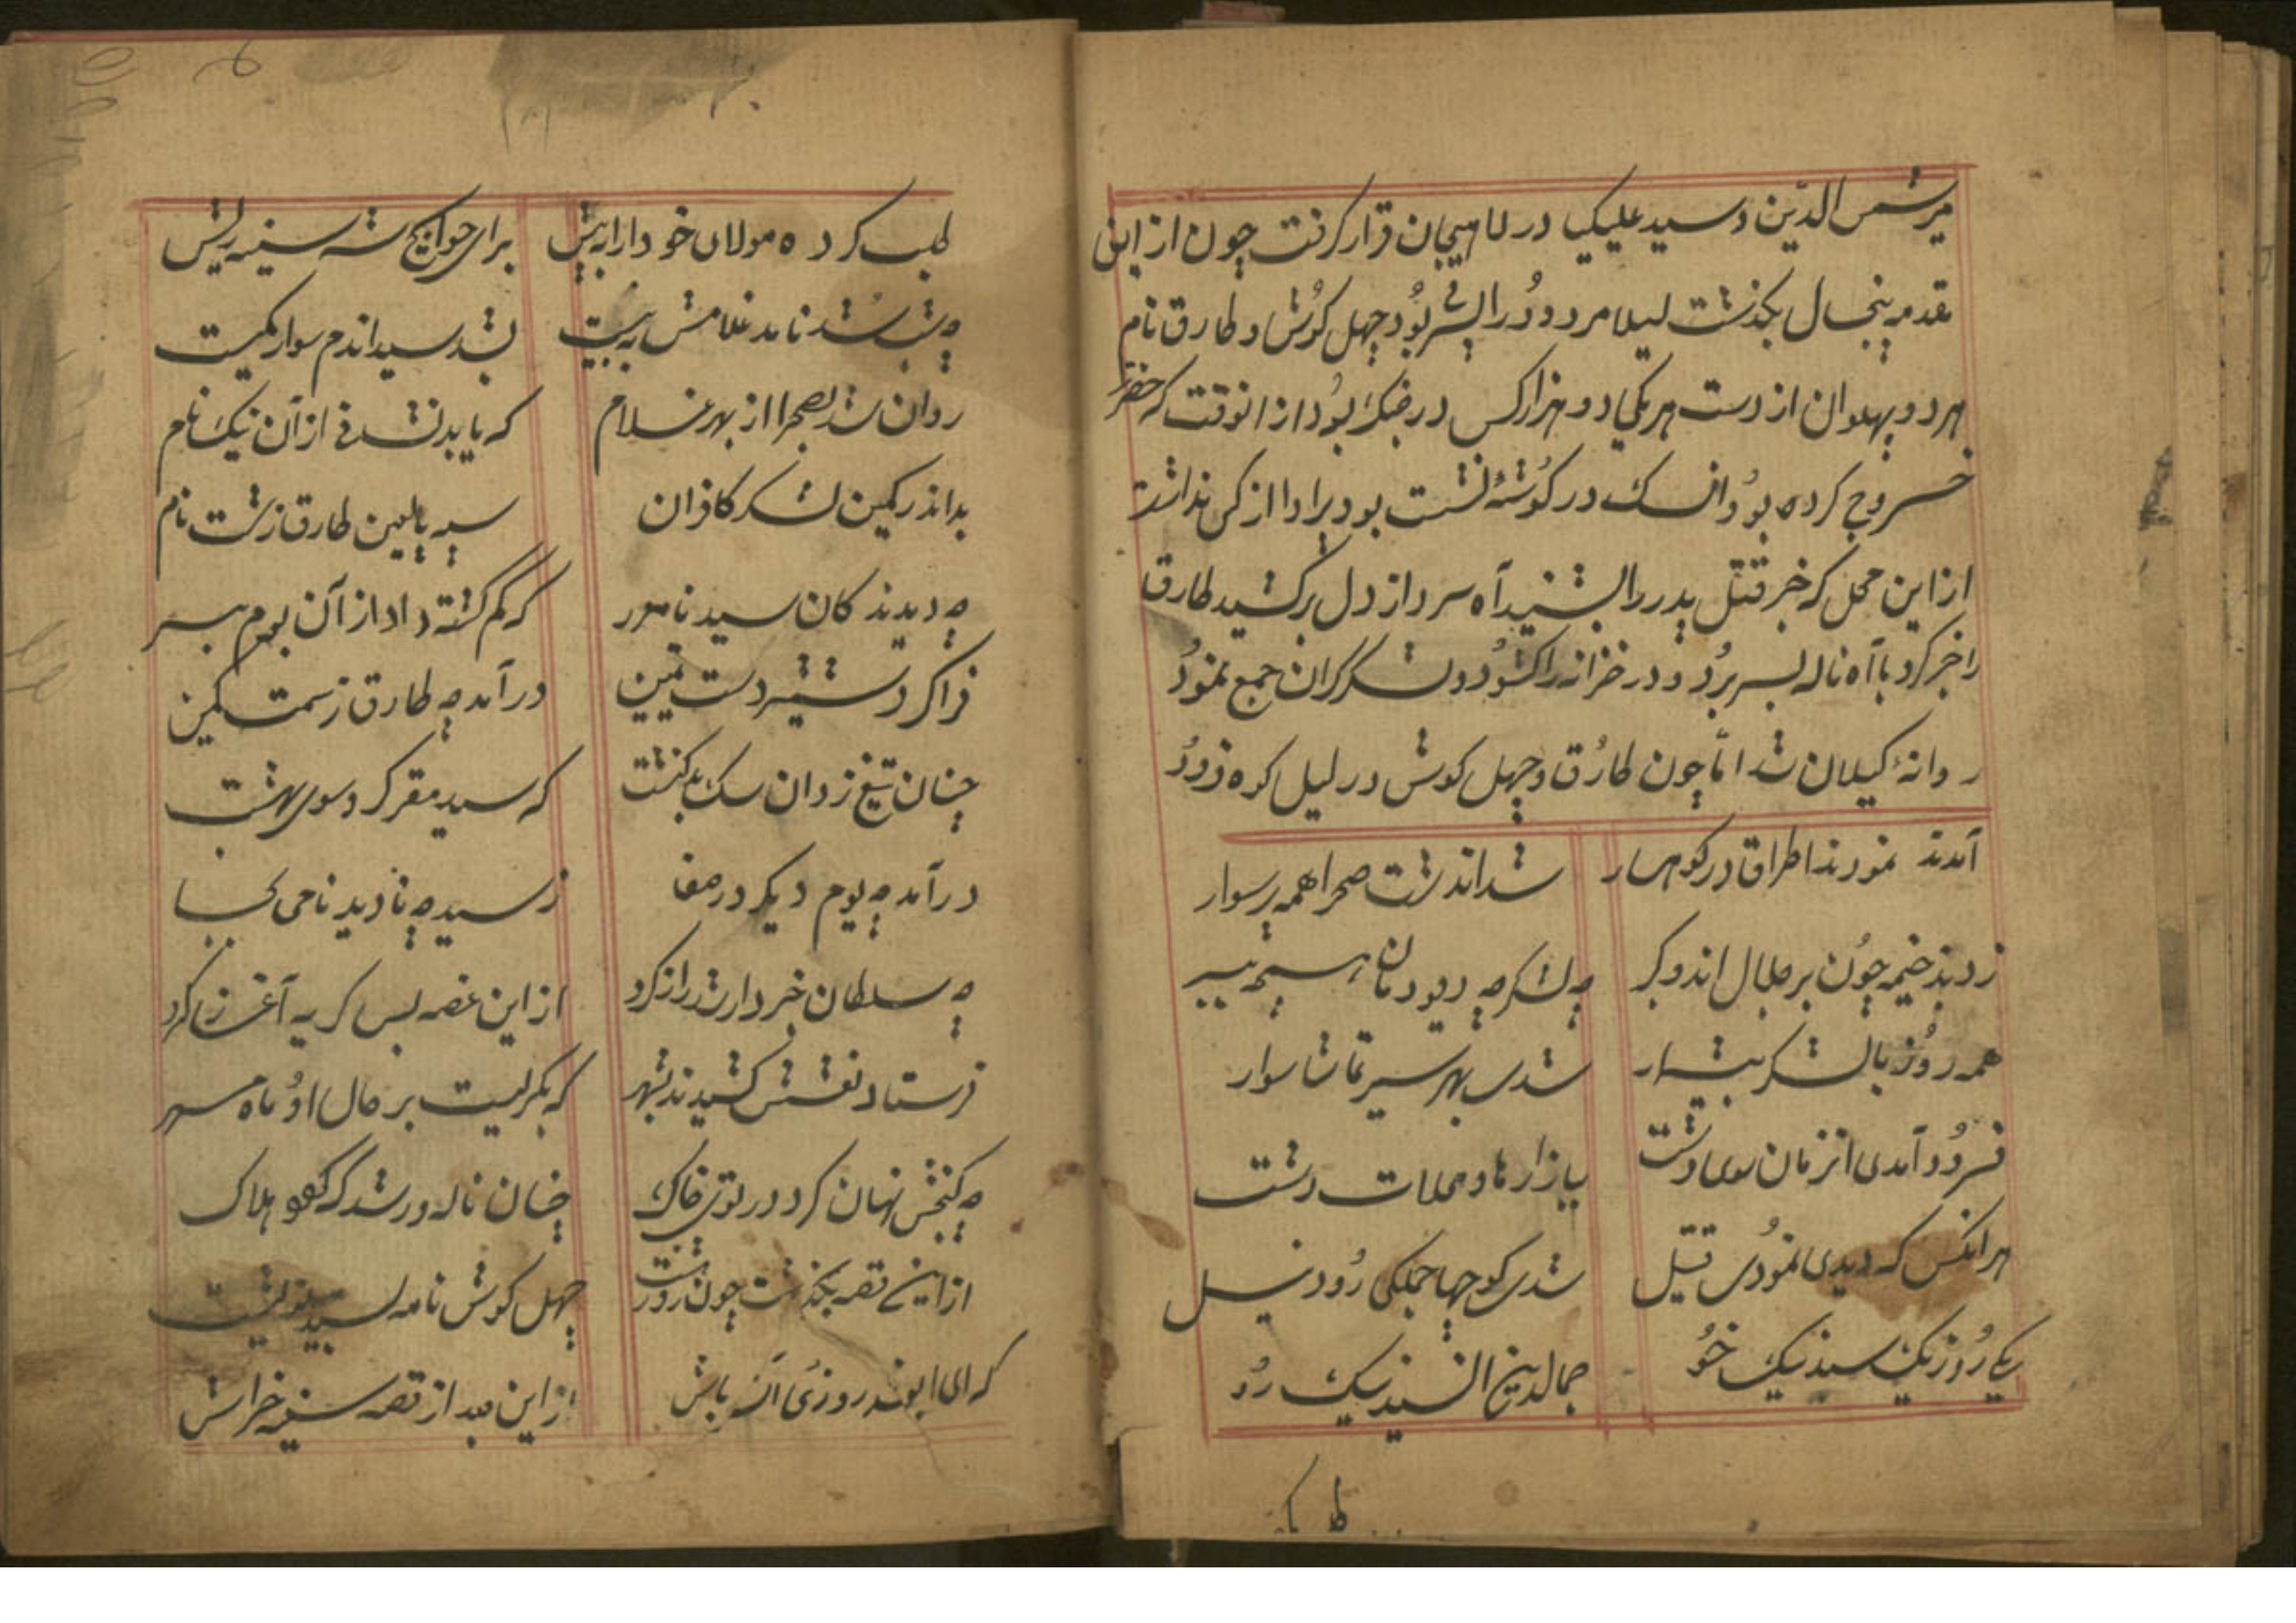 میر شمس الدین و سید علیکیا در لاهیجان قرار گرفت چون از این
مقدمه پنجسال بگذشت لیلا مردود را پسر بود چهل گوش و طارق نام
هر دو پهلوان از دست هر یکی دو هزار کس در جنگ بود از انوقت که حضرت
خروج کرده بود انسک در گوشه نشست بود پروا از کس نداشت
از این محل که خبر قتل پدر را بشنید آه سرد از دل برکشید طارق
را خبر کرد با آه ناله بسر برد و در خزانه را کشود و لشکر گران جمع نمود
روانه گیلان شد اما چون طارق و چهل گوش در لیل کوه فرود
آمدند نمودند اطراق در کوهسار
شد اندشت صحرا همه پر سوار
زدند خیمه چون بر جبال اندو کبر
چه لشکر چه دیودمان
همه روز با لشکر بیشمار
شدی بهر سیر تماشا سوار
فرود آمدی انزمان سوی دشت
ببازارها و محلات رشت
هر انکس که دیدی نمودی قتیل
شدی کوچها جملگی رود نیل
یکی روز یک سید نیک خو
جمالدین النسید نیک رو
طلب کرده مولای خود را به پیش
برای حوایج شه سینه ریش
چه شب شد نامد غلامش به بیت
بشد سید اندم سوار کمیت
روان شد بصحرا از بهر غلام
که یابد نشانی از آن نیک نام
بد اندر کمین لشکر کافران
سپه با لعین طارق زشت نام
چه دیدند کان سید نامور
که گم گشته داد از آن بوم بسر
فرا کرد شمشیر دست یمین
در آمد چه طارق ز سمت کمین
چنان تیغ زد ان سک بد کنشت
که سید مقر کرد سوی بهشت
در آمد چه یوم دیگر در صفا
ز سید چه نادید ناحی لحسا
چه سلطان خبردار شد راز کرد
از این غصه بس گریه آغاز کرد
فرستاد نعشش کشیدند بشهر
که بگریست بر حال او ماه مهر
چه گنجش نهان کرد در توی خاک
چنان ناله ور شد که گفتو هلاک
از این قصه بگذشت چون روز هشت
چهل گوش نامه بسید نوشت
که ای ابو روزی آن باش
از این بعد از قصه سینه خراش
طلب کر